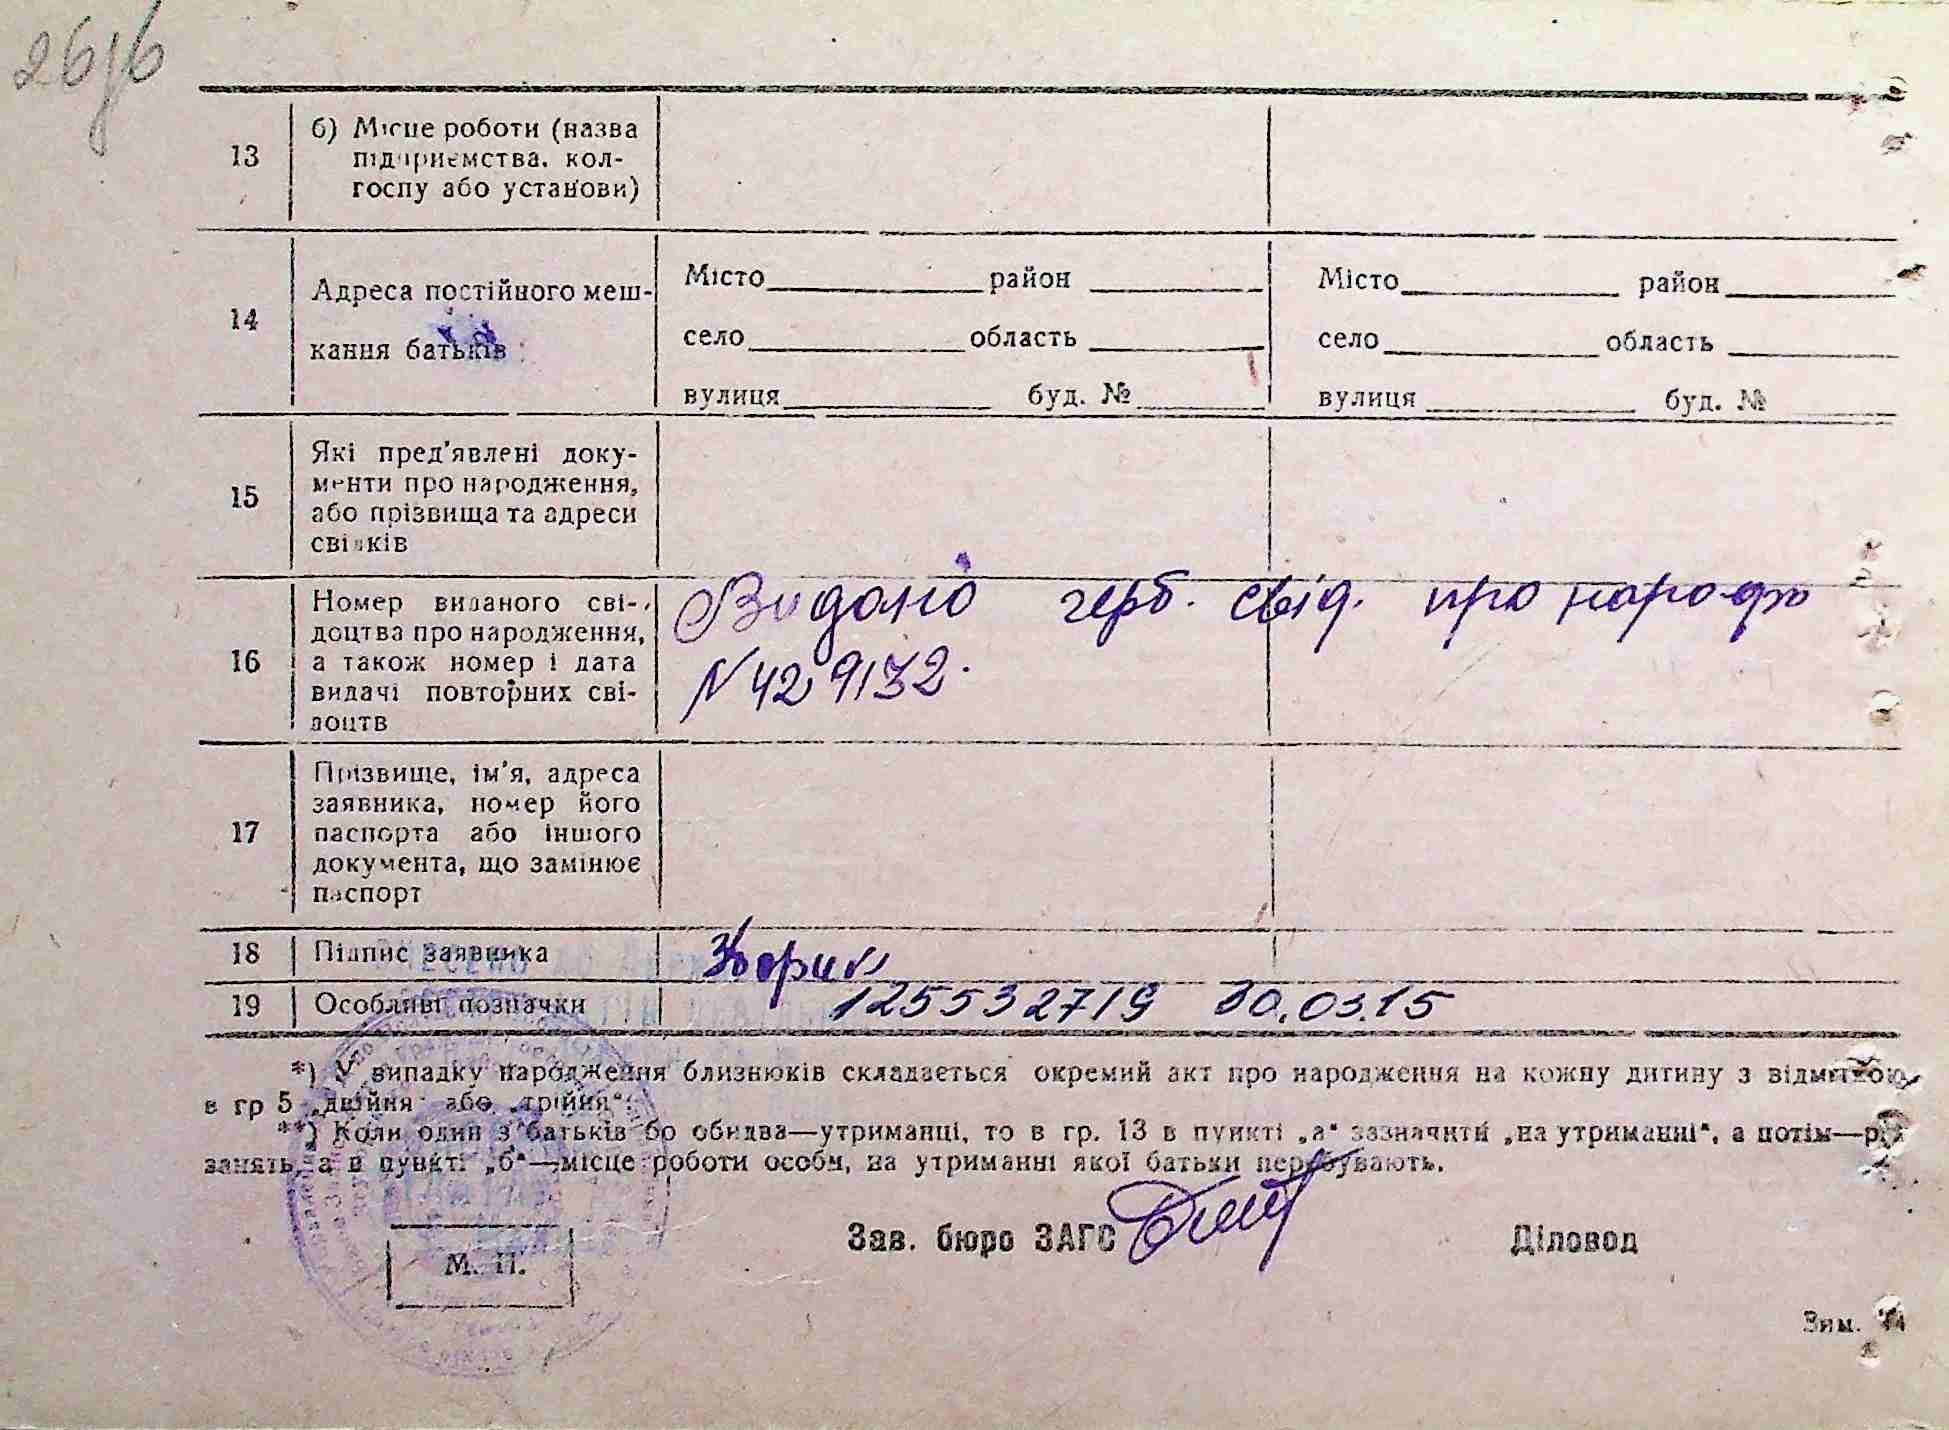 13
б) Місце роботи (назва
підприємства, кол-
госпу або установи)
14
Адреса постійного меш-
кання батьків
Місто район
село область
вулиця буд. №
Місто район
село область
вулиця буд. №
15
Які пред'явлені доку-
менти про народження,
або прізвища та адреси
свідків
16
Номер виданого сві-
доцтва про народження,
а також номер і дата
видачі повторних сві-
доцтв
Видано герб. свід. про народж
N 429132.
17
Прізвище, ім'я, адреса
заявника, номер його
паспорта або іншого
документа, що замінює
паспорт
18 Підпис заявника
19 Особливі позначки 125532719 30.03.15
*) У випадку народження близнюків складається окремий акт про народження на кожну дитину з відміткою
в гр 5 „двійня" або „трійня".
**) Коли один з батьків бо обидва—утриманці, то в гр. 13 в пункті „а" зазначити „на утриманні", а потім—рід
занять, а в пункті „б"—місце роботи особи, на утриманні якої батьки перебувають.
М. П.
Зав. бюро ЗАГС
Діловод
Зим.